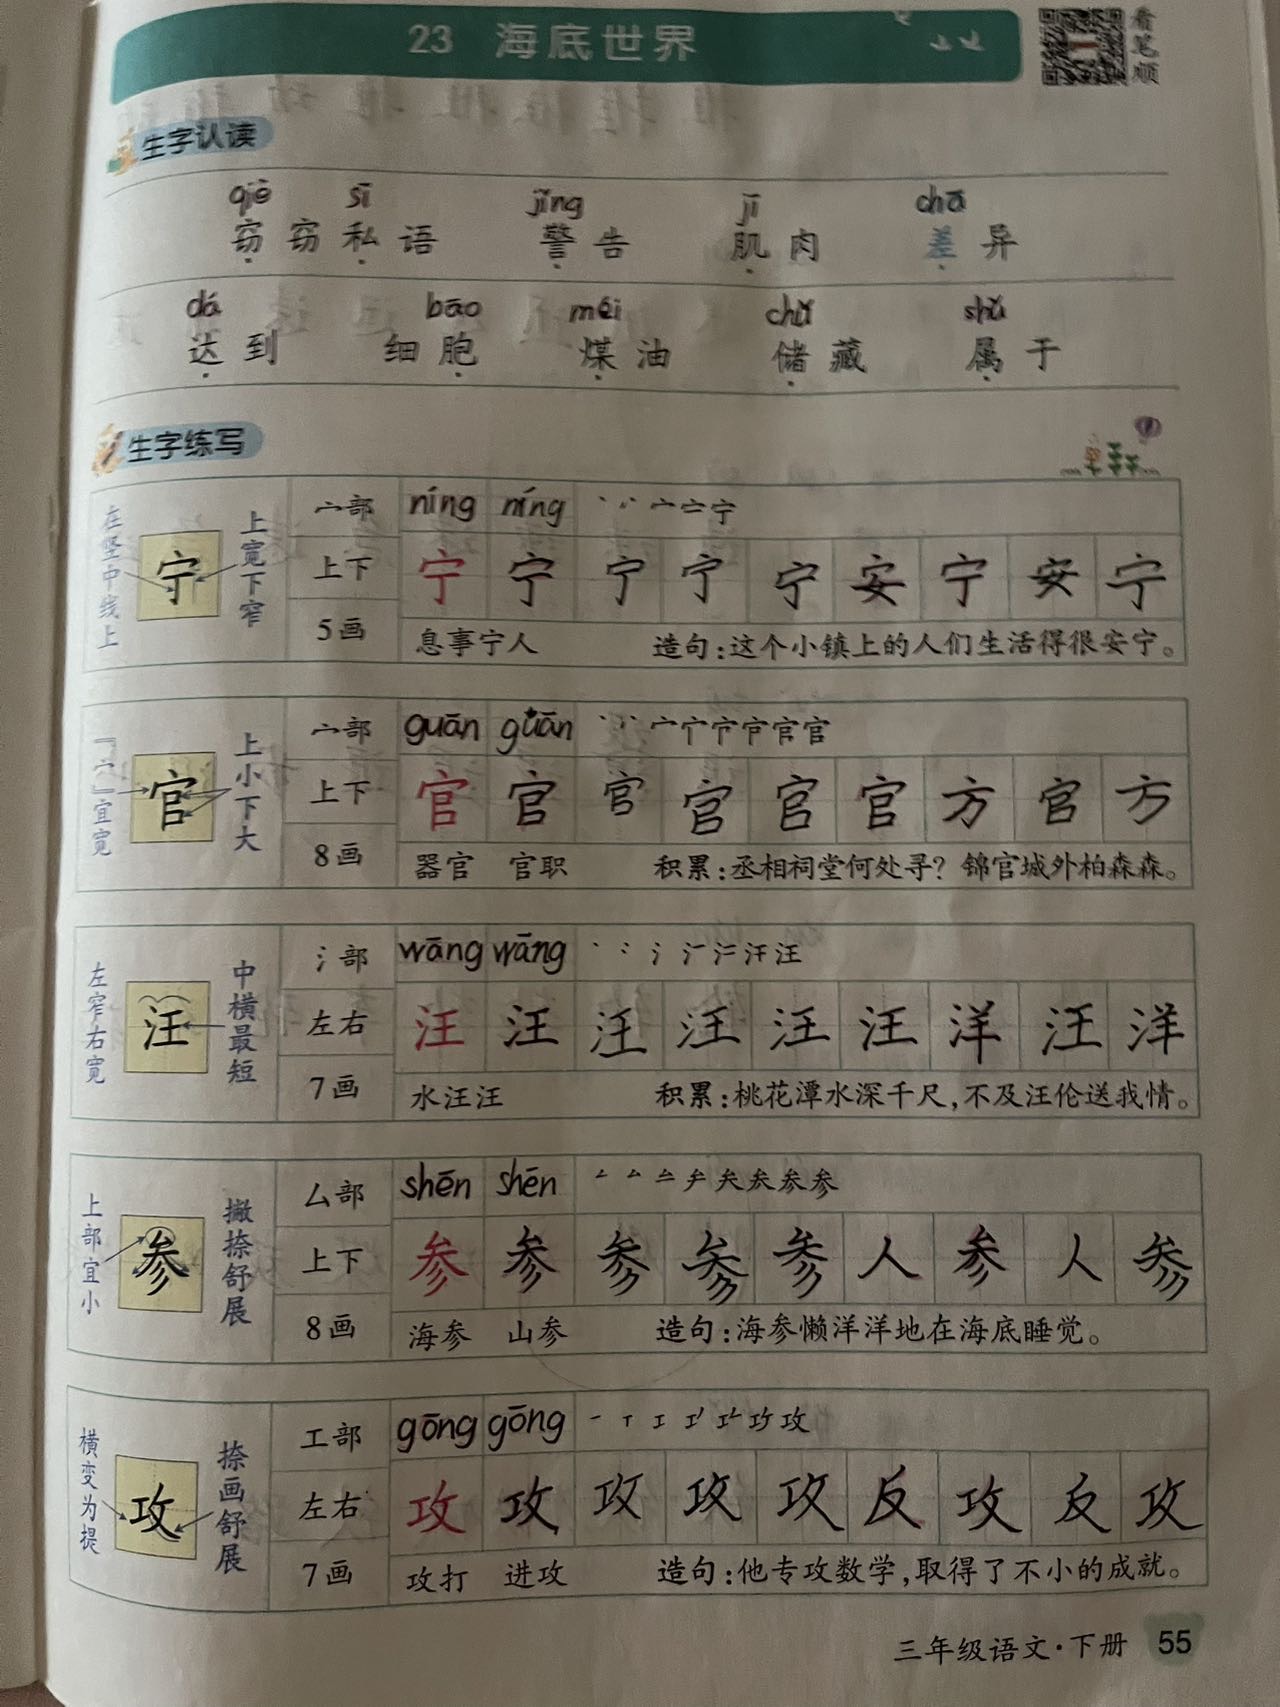 23 海底世界
看笔顺
生字认读
qiè sī jǐng jī chā
窃窃私语 警告 肌肉 差异
dá bāo méi chǔ shǔ
达到 细胞 煤油 储藏 属于
生字练写
在竖中线上 宁 上宽下窄
宀部 níng níng 丶 丷 宀 宁
上下 宁 宁 宁 宁 宁 安 宁 安 宁
5画 息事宁人 造句:这个小镇上的人们生活得很安宁。
「宀」宜宽 官 上小下大
宀部 guān guān 宀 官 官
上下 官 官 官 官 官 官 方 官 方
8画 器官 官职 积累:丞相祠堂何处寻?锦官城外柏森森。
左窄右宽 汪 中横最短
氵部 wāng wāng 丶 冫 氵 汪
左右 汪 汪 汪 汪 汪 汪 洋 汪 洋
7画 水汪汪 积累:桃花潭水深千尺,不及汪伦送我情。
上部宜小 参 撇捺舒展
厶部 shēn shēn 参 参
上下 参 参 参 参 参 人 参 人 参
8画 海参 山参 造句:海参懒洋洋地在海底睡觉。
横变为提 攻 捺画舒展
工部 gōng gōng 一 丅 工 攻
左右 攻 攻 攻 攻 攻 反 攻 反 攻
7画 攻打 进攻 造句:他专攻数学,取得了不小的成就。
三年级语文·下册 55